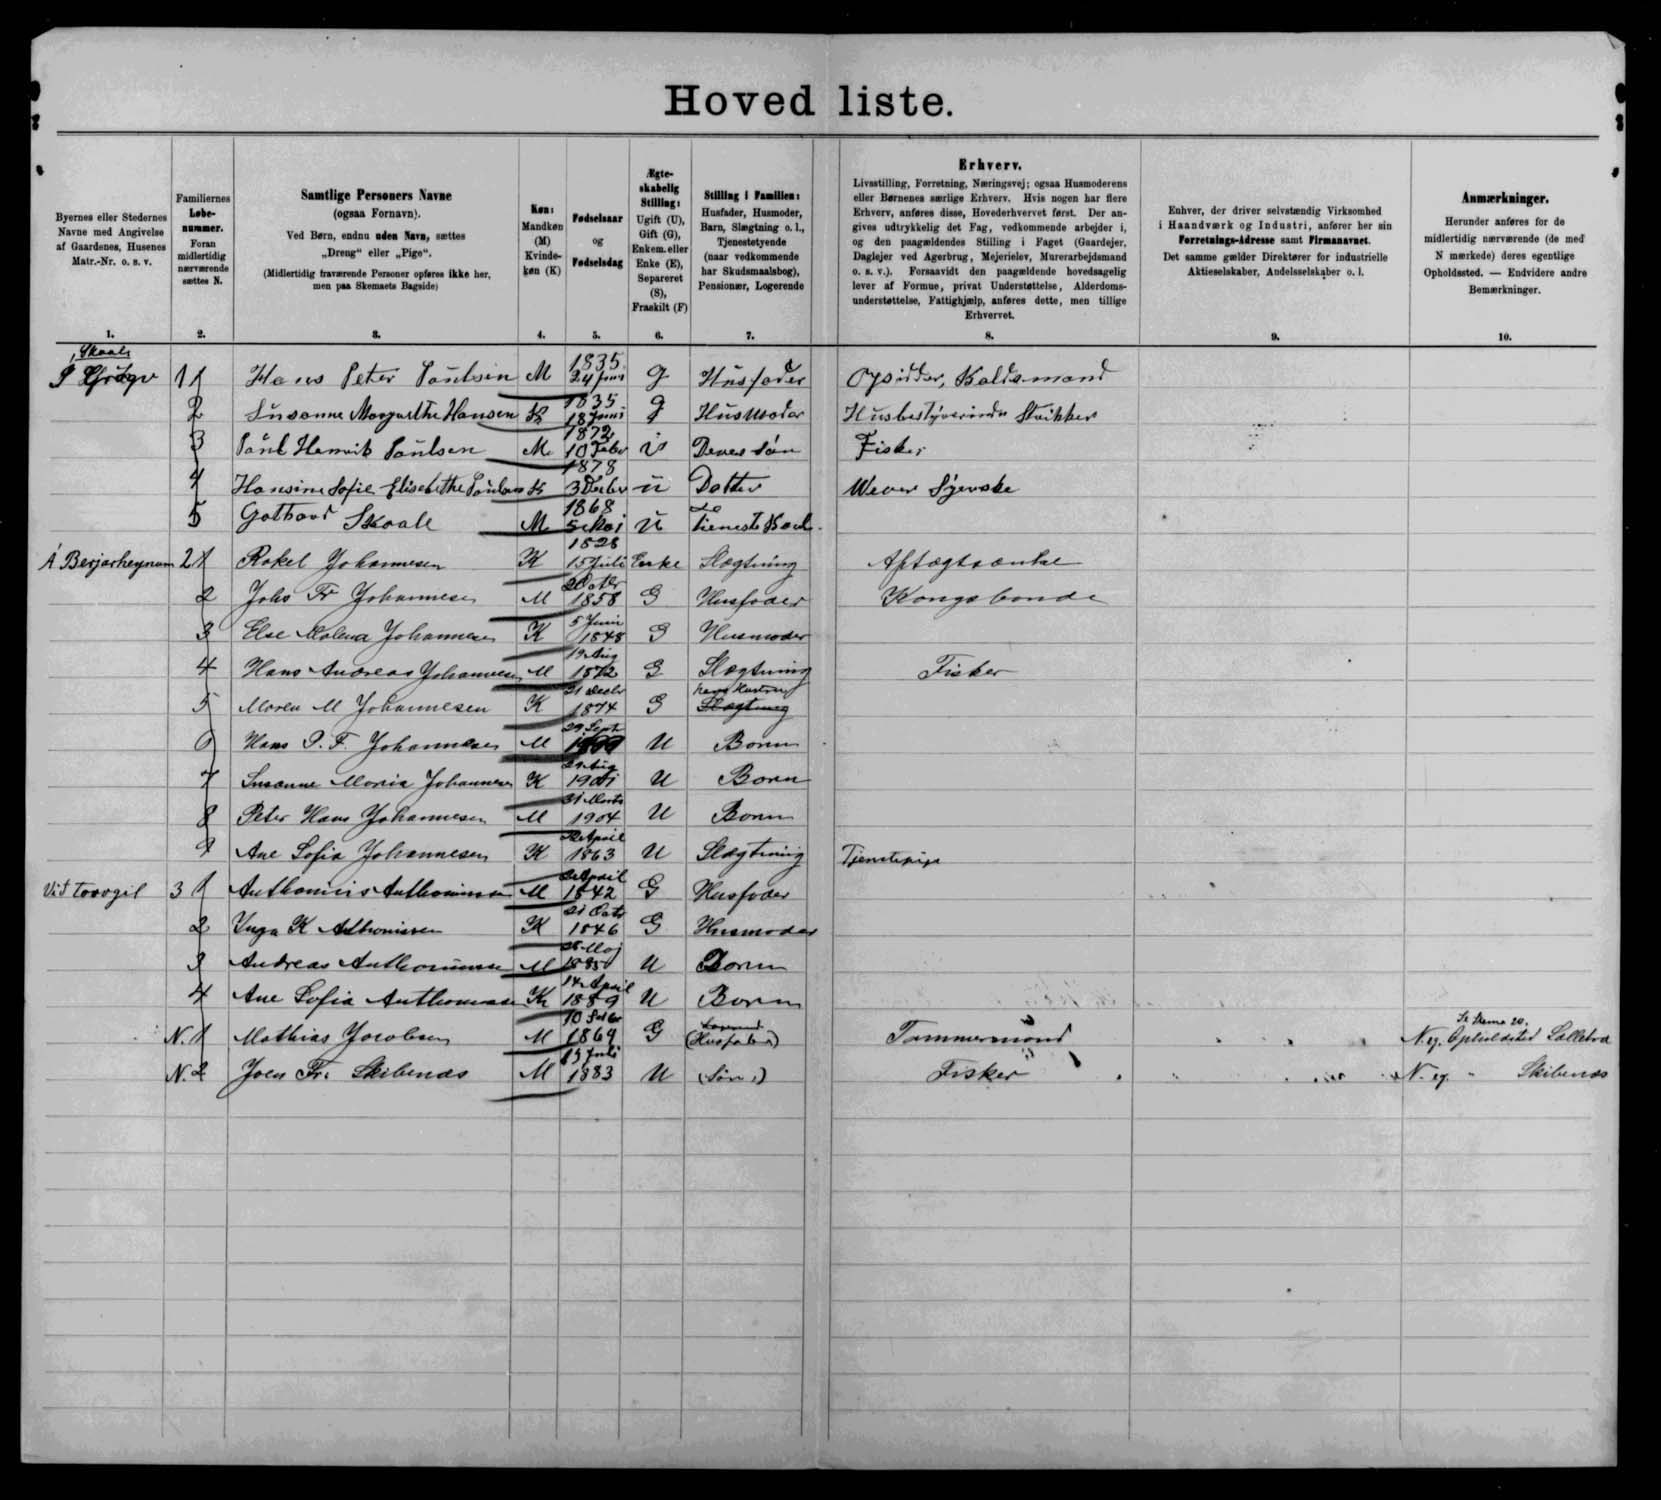 Hovedliste.
Byernes eller Stedernes Navne med Angivelse af Gaardenes, Husenes Matr.-Nr. o. s. v.
Familiernes Løbenummer. Foran midlertidig nærværende sættes N.
Samtlige Personers Navne (ogsaa Fornavn). Ved Børn, endnu uden Navn, sættes „Dreng“ eller „Pige“. (Midlertidig fraværende Personer opføres ikke her, men paa Skemaets Bagside)
Køn: Mandkøn (M) Kvindekøn (K)
Fødselsaar og Fødselsdag
Ægteskabelig Stilling: Ugift (U), Gift (G), Enkem. eller Enke (E), Separeret (S), Fraskilt (F)
Stilling i Familien: Husfader, Husmoder, Barn, Slægtning o. l., Tjenestetyende (naar vedkommende har Skudsmaalsbog), Pensionær, Logerende
Erhverv. Livsstilling, Forretning, Næringsvej; ogsaa Husmoderens eller Børnenes særlige Erhverv. Hvis nogen har flere Erhverv, anføres disse, Hovederhvervet først. Der angives udtrykkelig det Fag, vedkommende arbejder i, og den paagældendes Stilling i Faget (Gaardejer, Daglejer ved Agerbrug, Mejerielev, Murerarbejdsmand o. s. v.). Forsaavidt den paagældende hovedsagelig lever af Formue, privat Understøttelse, Alderdomsunderstøttelse, Fattighjælp, anføres dette, men tillige Erhvervet.
Enhver, der driver selvstændig Virksomhed i Haandværk og Industri, anfører her sin Forretnings-Adresse samt Firmanavnet. Det samme gælder Direktører for industrielle Aktieselskaber, Andelsselskaber o. l.
Anmærkninger. Herunder anføres for de midlertidig nærværende (de med N mærkede) deres egentlige Opholdssted. — Endvidere andre Bemærkninger.
1. 2. 3. 4. 5. 6. 7. 8. 9. 10.
Skaale
1 1 Hans Peter Poulsen M 1835 24 Juni G Husfader Opsidder,
2 Susanne Margrethe Hansen K 1835 18 Juni G Husmoder Husbestyrerinde
3 Poul Henrik Poulsen M 1872 10 Febr U Deres Søn Fisker
4 Hansine Sofie Elisebethe Poulsen K 1878 U Datter Syerske
5 Gothard Skaale M 1868 5 Maj U Tieneste Karl
Á Berjarheynum 2 1 Rakel Johannesen K 1828 15 Juli Enke Slægtning Aftægtsenke
2 Johs Fr Johannesen M 20 Octbr 1858 G Husfader Kongsbonde
3 Else Malena Johannesen K 5 Juni 1848 G Husmoder
4 Hans Andreas Johannesen M 19 Aug 1872 G Slægtning Fisker
5 Maren M Johannesen K 21 Decbr 1874 G hans Hustru Slægtning
6 Hans P. F. Johannesen M 29 Septr U Barn
7 Susanne Maria Johannesen K 1901 U Barn
8 Peter Hans Johannesen M 31 Marts 1904 U Barn
9 Ane Sofia Johannesen K April 1863 U Slægtning Tjenestepige
Vid Torvgil 3 1 Anthonius Anthoniussen M April 1842 G Husfader
2 Inga K Anthonissen K 21 Octr 1846 G Husmoder
3 Andreas Anthoniussen M 28 Maj 1885 U Barn
4 Ane Sofia Anthoniussen K 14 April 1889 U Barn
N. 1 Mathias Jacobsen M 1864 G (Husfader) Tømmermand Se Skema 20. N. eg. Opholdsted
N. 2 Joen Fr. Skibenæs M 1883 U (Søn) Fisker N. eg. " Skibenæs